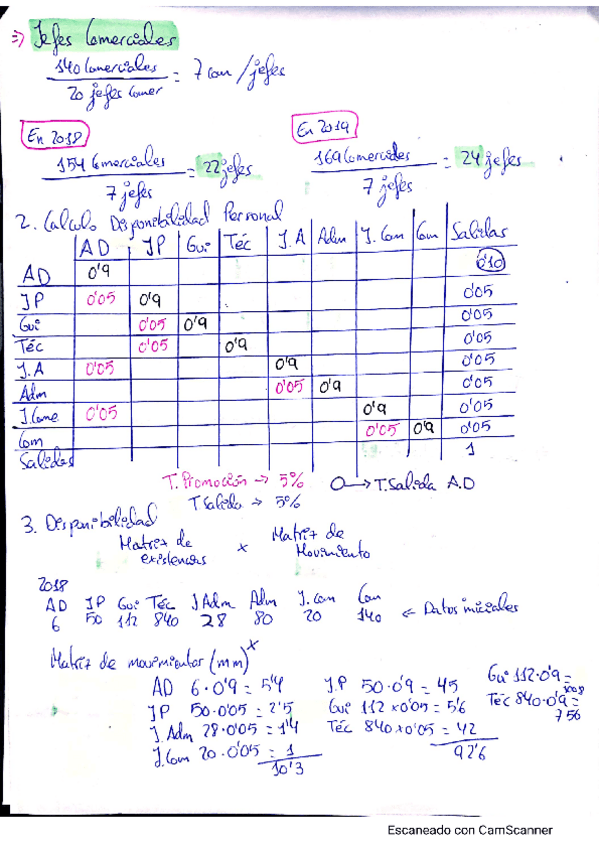 => Jefes Comerciales
140 Comerciales / 20 jefes Comer = 7 com / jefes
En 2018 En 2019
154 Comerciales / 7 jefes = 22 jefes 169 Comerciales / 7 jefes = 24 jefes
2. Calculo Disponibilidad Personal
AD JP Gui Téc J.A Adm J.Com Com Salidas
AD 0'9 0'10
JP 0'05 0'9 0'05
Gui 0'05 0'9 0'05
Téc 0'05 0'9 0'05
J.A 0'05 0'9 0'05
Adm 0'05 0'9 0'05
J.Come 0'05 0'9 0'05
Com 0'05 0'9 0'05
Salidas 1
T. Promoción → 5% O→ T. Salida A.D
T Salida → 5%
3. Disponibilidad
Matriz de existencias x Matriz de Movimiento
2018
AD JP Gui Téc J Adm Adm J. Com Com
6 50 112 840 28 80 20 140 ← Datos iniciales
Matriz de movimientos (mm) x
AD 6·0'9 = 5'4 J.P 50·0'9 = 45 Gui 112·0'9 = 100'8
JP 50·0'05 = 2'5 Gui 112x0'05 = 5'6 Téc 840·0'9 = 756
J. Adm 28·0'05 = 1'4 Téc 840x0'05 = 42
J.Com 20·0'05 = 1 92'6
10'3
Escaneado con CamScanner